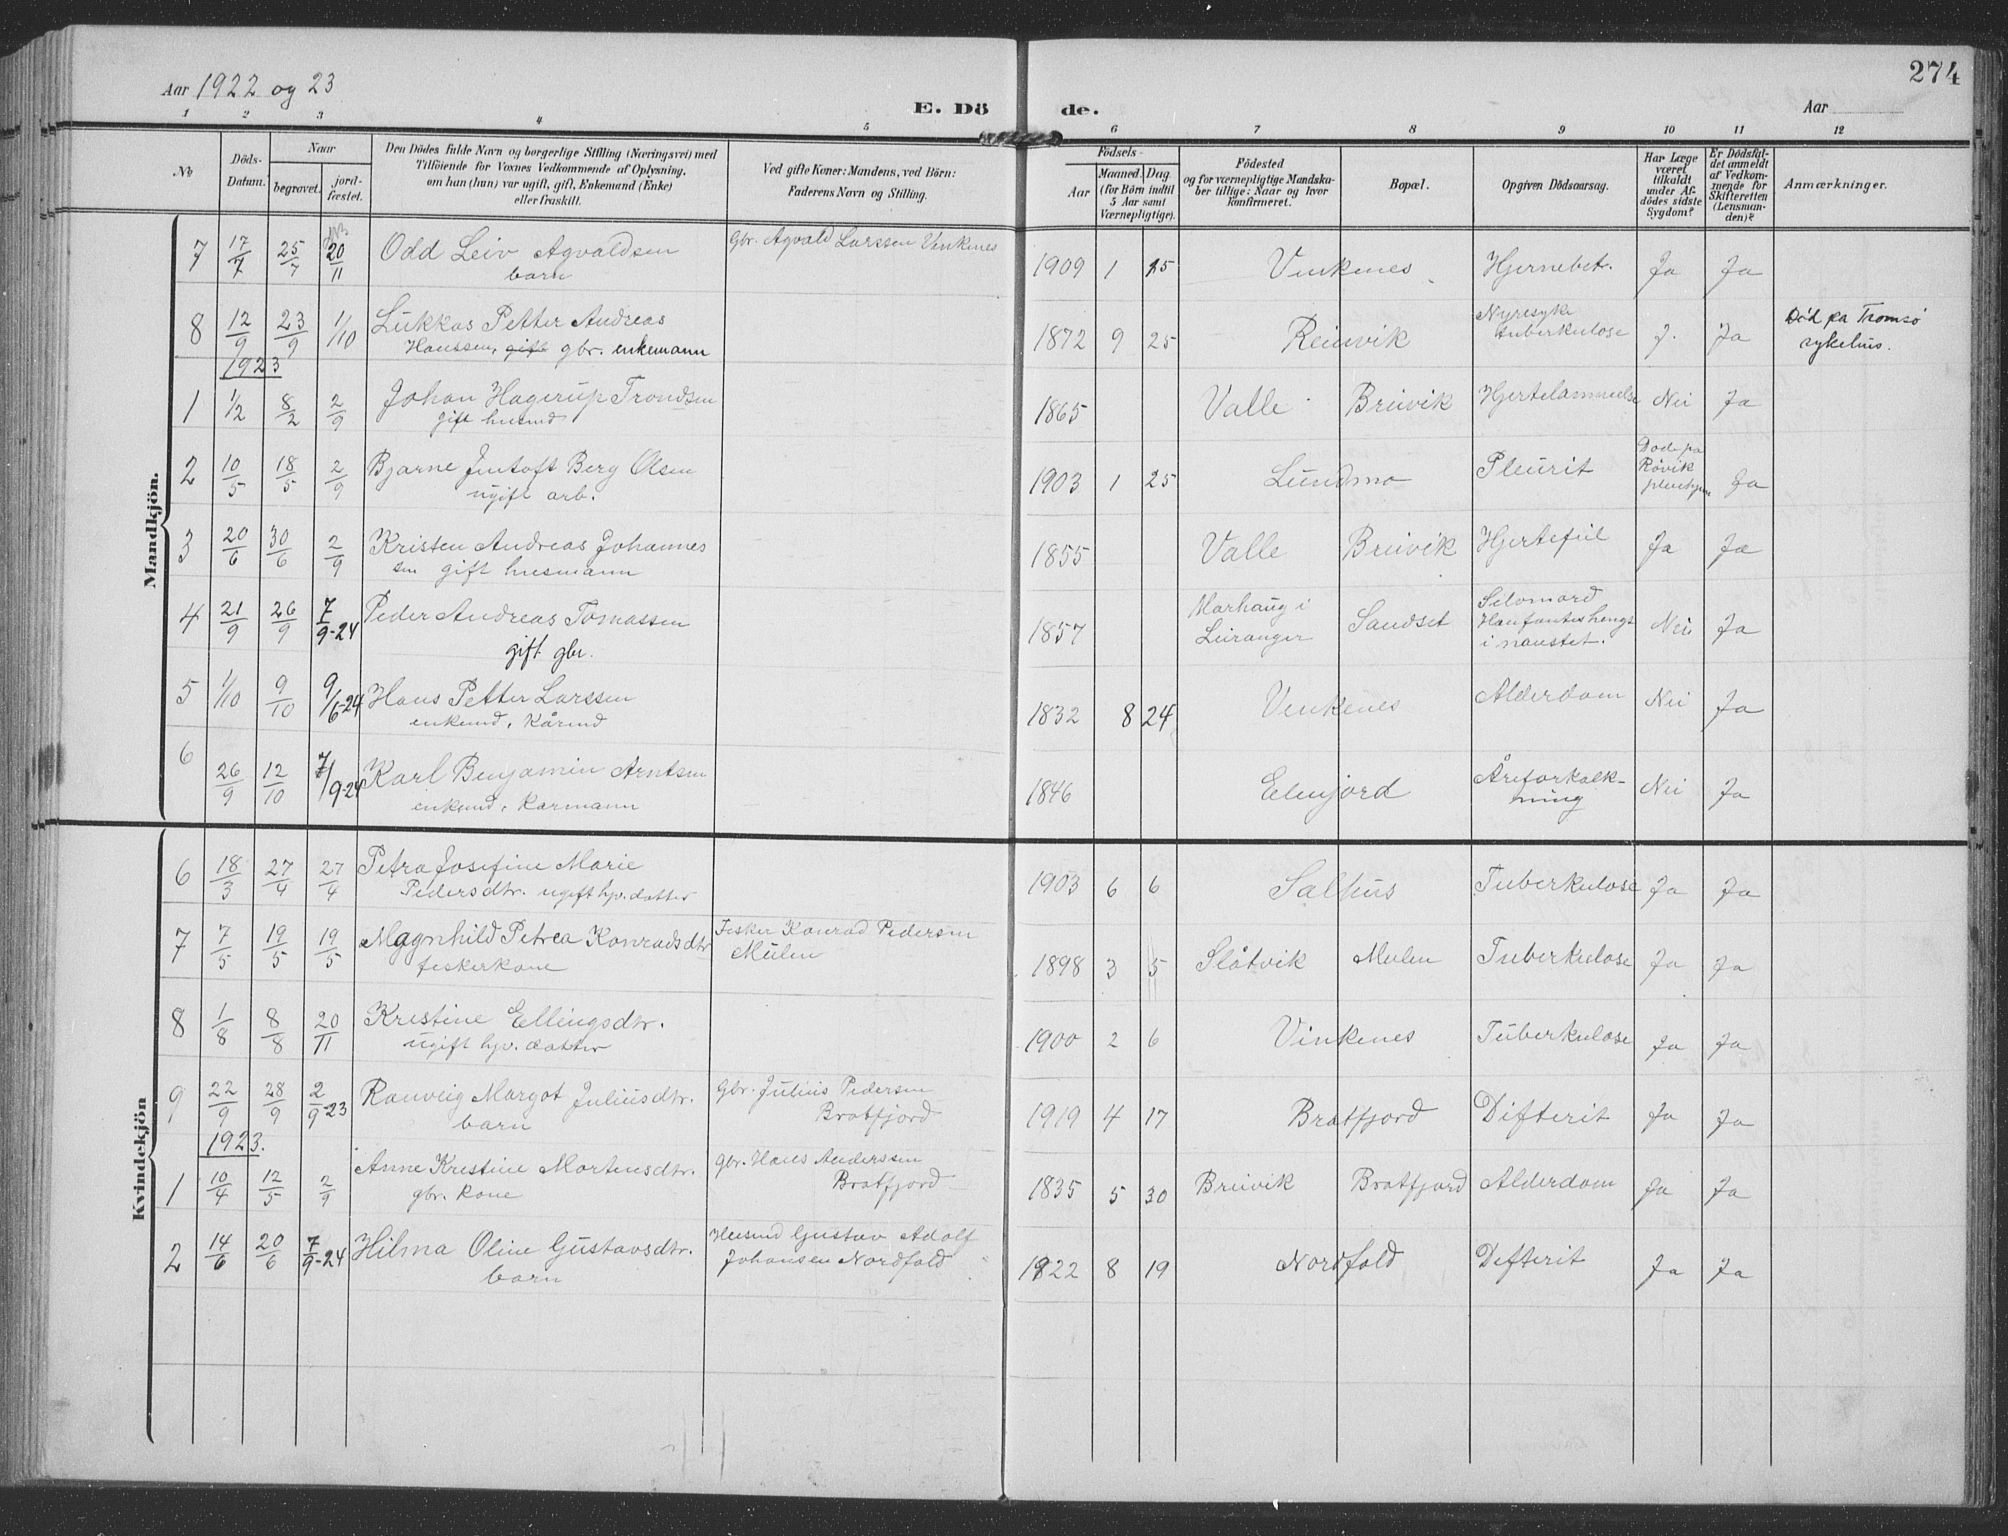 274
Aar 1922 og 23
E. Dö de.
Aar
1 2 3 4 5 6 7 8 9 10 11 12
No
Döds-Datum.
Naar
begravet.
jord-fæstet.
Den Dödes fulde Navn og borgerlige Stilling (Næringsvei) med
Tilföiende for Voxnes Vedkommende af Oplysning,
om han (hun) var ugift, gift, Enkemand (Enke)
eller fraskilt.
Ved gifte Koner: Mandens, ved Börn:
Faderens Navn og Stilling.
Födsels-
Aar
Maaned. Dag
(for Börn indtil
5 Aar samt
Værnepligtige).
Födested
og for værnepligtige Mandska-
ber tillige: Naar og hvor
konfirmeret.
Bopæl.
Opgiven Dödsaarsag.
Har Læge
været
tilkaldt
under Af-
dödes sidste
Sygdom?
Er Dödsfal-
det anmeldt
af Vedkom-
mende for
Skifteretten
(Lensman-
den)?
Anmærkninger.
Mandkjön.
7 17/7 25/7 20/11 Odd Leiv Agvaldsen Gbr. Agvald Larssen Vinkenes 1909 1 15 Vinkenes Hjernebet. Ja Ja
barn
8 12/9 23/9 1/10 Lukkas Petter Andreas 1872 9 25 Reinvik Nyresyke tuberkulose J. Ja Död pa Tromsø
Hanssen, gift gbr. enkemann sykehus.
1923
1 1/2 8/2 2/9 Johan Hagerup Trondsen 1865 Valle Breivik Hjertelammelse Nei Ja
gift husmd
2 10/5 18/5 2/9 Bjarne Jentoft Berg Olsen 1903 1 25 Lundmo Pleurit Døde pa Røvik pleiehjem Ja
ugift arb.
3 20/6 30/6 2/9 Kristen Andreas Johannes 1855 Valle Breivik Hjertefeil Ja Ja
sen gift husmann
4 21/9 26/9 7/9-24 Peder Andreas Tomassen 1857 Marhaug i Leiranger Sandset Selvmord Han fantes hengt i naustet. Nei Ja
gift gbr.
5 1/10 9/10 9/6-24 Hans Petter Larssen 1832 8 24 Vinkenes Alderdom Nei Ja
enkemd, Kårmd
6 26/9 12/10 7/9-24 Karl Benjamin Arntsen 1846 Elvfjord Åreforkalk-ning Nei Ja
enkemd, Karmann
Kvindekjön
6 18/3 27/4 27/4 Petra Josefine Marie 1903 6 6 Salhus Tuberkulose Ja Ja
Pedersdtr. ugift hp. datter
7 7/5 19/5 19/5 Magnhild Petrea Konradsdtr Fisker Konrad Pedersen 1898 3 5 Slåtvik Mulen Tuberkulose Ja Ja
fiskerkone Mulen
8 1/8 8/8 20/11 Kristine Ellingsdtr. 1900 2 6 Vinkenes Tuberkulose Ja Ja
ugift hp. datter
9 22/9 28/9 2/9-23 Ranveig Margot Juliusdtr. Gbr. Julius Pedersen 1919 4 17 Bratfjord Difterit Ja Ja
barn Bratfjord
1923.
1 10/4 12/5 2/9 Anne Kristine Mortensdtr. gbr. Hans Anderssen 1835 5 30 Breivik Bratfjord Alderdom Ja Ja
gbr. kone Bratfjord
2 14/6 20/6 7/9-24 Hilma Oline Gustavsdtr. Husmd Gustav Adolf 1922 8 19 Nordfold Difterit Ja Ja
barn Johansen Nordfold